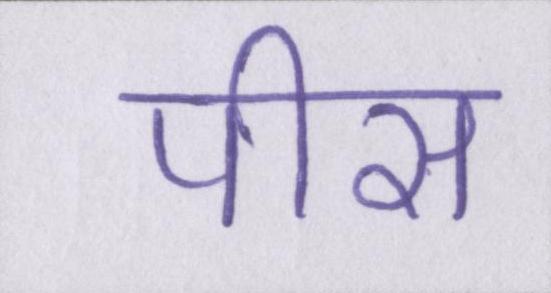 पीस